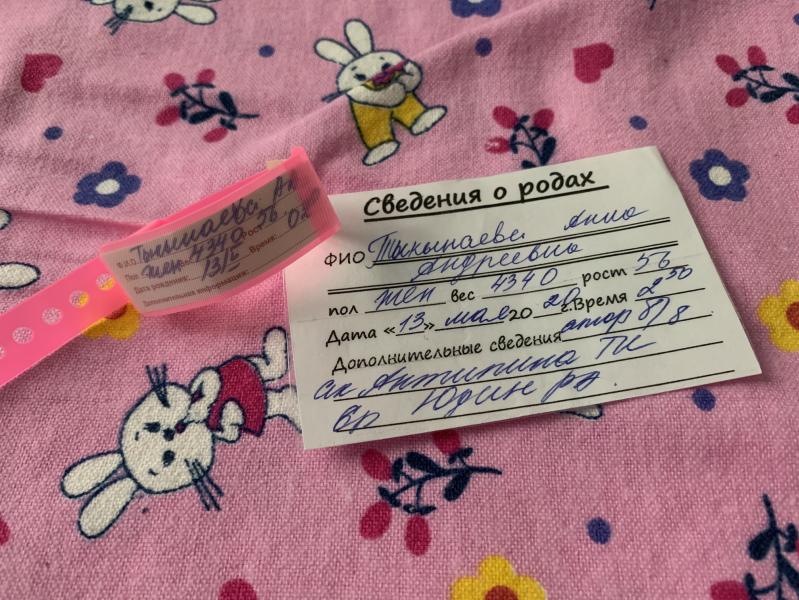 Сведения о родах
ФИО Тыкынаева Анна
Андреевна
пол жен вес 4340 рост 56
Дата «13» мая 20 20 г. Время 2 50
Дополнительные сведения апгар 8/8
ак Антипина
вр Юдин
Ф.И.О. Тыкынаева Ан
Пол жен 4340 Рост 56
Дата рождения: 13/V Время: 02
Дополнительная информация: